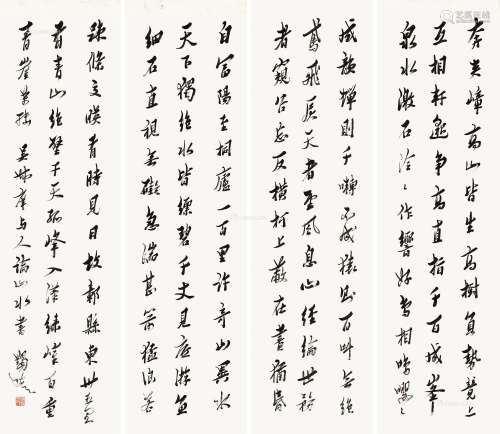 自富陽至桐廬一百里許奇山異水
天下獨絕水皆縹碧千丈見底游魚
細石直視無礙急湍甚箭猛浪若
奔夹嶂高山皆生高樹負勢競上
互相軒邈爭高直指千百成峯
泉水激石泠泠作響好鳥相鳴嚶嚶
成韻蟬則千囀不咸猿則百叫無絕
鳶飛戾天者望風息心經綸世務
者窺谷忘反橫柯上蔽在晝猶昏
疎條交暎有時見日故鄣縣東卅五里
有青山絕壁干天孤峰入漢綠嶂百重
青崖萬 吳叔庠與人論山水書